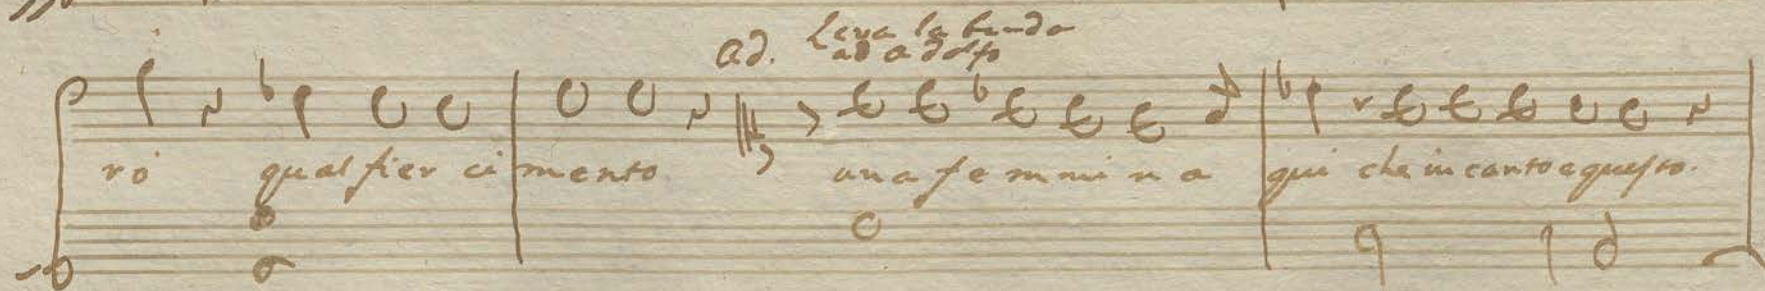 Ad. Leva la benda
ad adolfo
rò qual fier ci mento una fe m mi n a qui che in canto e questo.